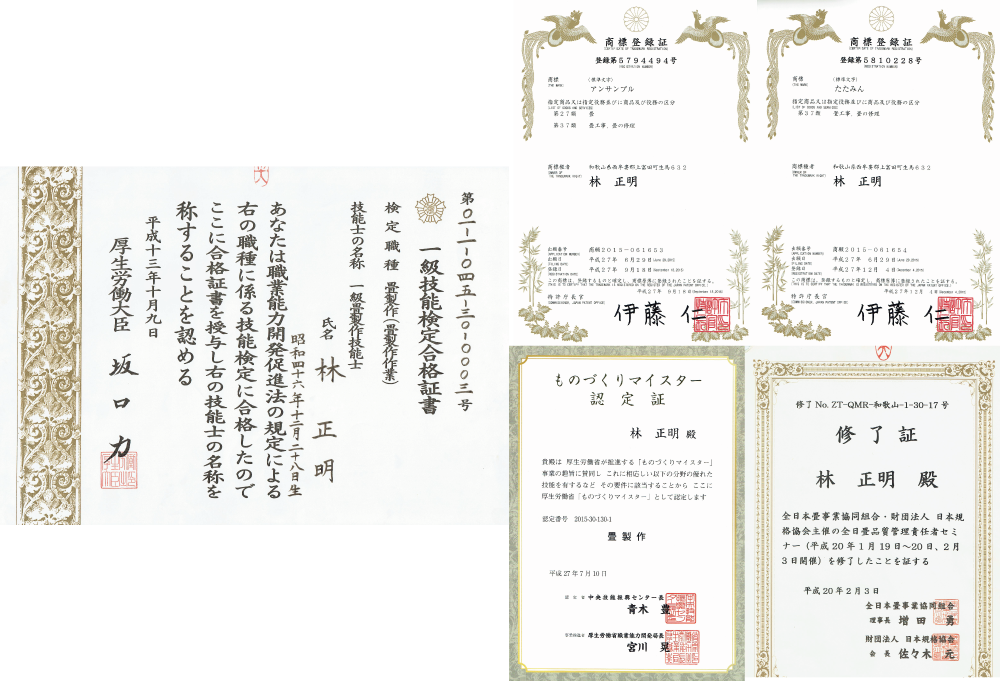 第〇一-一-〇四五-三〇-〇〇〇三号
一級技能検定合格証書
検定職種 畳製作(畳製作作業)
技能士の名称 一級畳製作技能士
氏名 林正明
昭和四十六年十二月二十八日生
あなたは職業能力開発促進法の規定による
右の職種に係る技能検定に合格したので
ここに合格証書を授与し右の技能士の名称を
称することを認める
平成十三年十月九日
厚生労働大臣 坂口力
商標登録証
(CERTIFICATE OF TRADEMARK REGISTRATION)
登録第5794494号
(REGISTRATION NUMBER)
商標
(THE MARK)
(標準文字)
アンサンブル
指定商品又は指定役務並びに商品及び役務の区分
(LIST OF GOODS AND SERVICES)
第27類 畳
第37類 畳工事,畳の修理
商標権者
(OWNER OF THE TRADEMARK RIGHT)
和歌山県西牟婁郡上富田町生馬632
林 正明
出願番号
(APPLICATION NUMBER)
商願2015-061653
出願日
(FILING DATE)
平成27年 6月29日(June 29,2015)
登録日
(REGISTRATION DATE)
平成27年 9月18日(September 18,2015)
この商標は、登録するものと確定し、商標原簿に登録されたことを証する。
(THIS IS TO CERTIFY THAT THE TRADEMARK IS REGISTERED ON THE REGISTER OF THE JAPAN PATENT OFFICE.)
平成27年 9月18日(September 18,2015)
特許庁長官
(COMMISSIONER, JAPAN PATENT OFFICE)
伊藤 仁
商標登録証
(CERTIFICATE OF TRADEMARK REGISTRATION)
登録第5810228号
(REGISTRATION NUMBER)
商標
(THE MARK)
(標準文字)
たたみん
指定商品又は指定役務並びに商品及び役務の区分
(LIST OF GOODS AND SERVICES)
第37類 畳工事,畳の修理
商標権者
(OWNER OF THE TRADEMARK RIGHT)
和歌山県西牟婁郡上富田町生馬632
林 正明
出願番号
(APPLICATION NUMBER)
商願2015-061654
出願日
(FILING DATE)
平成27年 6月29日(June 29,2015)
登録日
(REGISTRATION DATE)
平成27年12月 4日(December 4,2015)
この商標は、登録するものと確定し、商標原簿に登録されたことを証する。
(THIS IS TO CERTIFY THAT THE TRADEMARK IS REGISTERED ON THE REGISTER OF THE JAPAN PATENT OFFICE.)
平成27年12月 4日(December 4,2015)
特許庁長官
(COMMISSIONER, JAPAN PATENT OFFICE)
伊藤 仁
ものづくりマイスター
認定証
林 正明 殿
貴殿は 厚生労働省が推進する「ものづくりマイスター」
事業の趣旨に賛同し これに相応しい以下の分野の優れた
技能を有するなど その要件に該当することから ここに
厚生労働省「ものづくりマイスター」として認定します
認定番号 2015-30-130-1
畳製作
平成27年7月10日
認定者 中央技能振興センター長
青木 豊
厚生労働省職業能力開発局長
宮川 晃
修了No. ZT-QMR-和歌山-1-30-17号
修了証
林 正明 殿
全日本畳事業協同組合・財団法人 日本規
格協会主催の全日畳品質管理責任者セミ
ナー(平成20年1月19日~20日、2月
3日開催)を修了したことを証する
平成20年2月3日
全日本畳事業協同組合
理事長 増田 勇
財団法人 日本規格協会
会長 佐々木 元